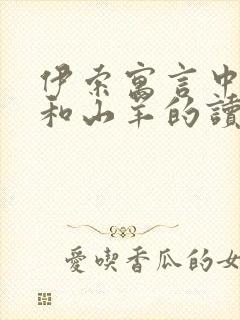 伊索寓言中
和山羊的讀
愛喫香瓜的女